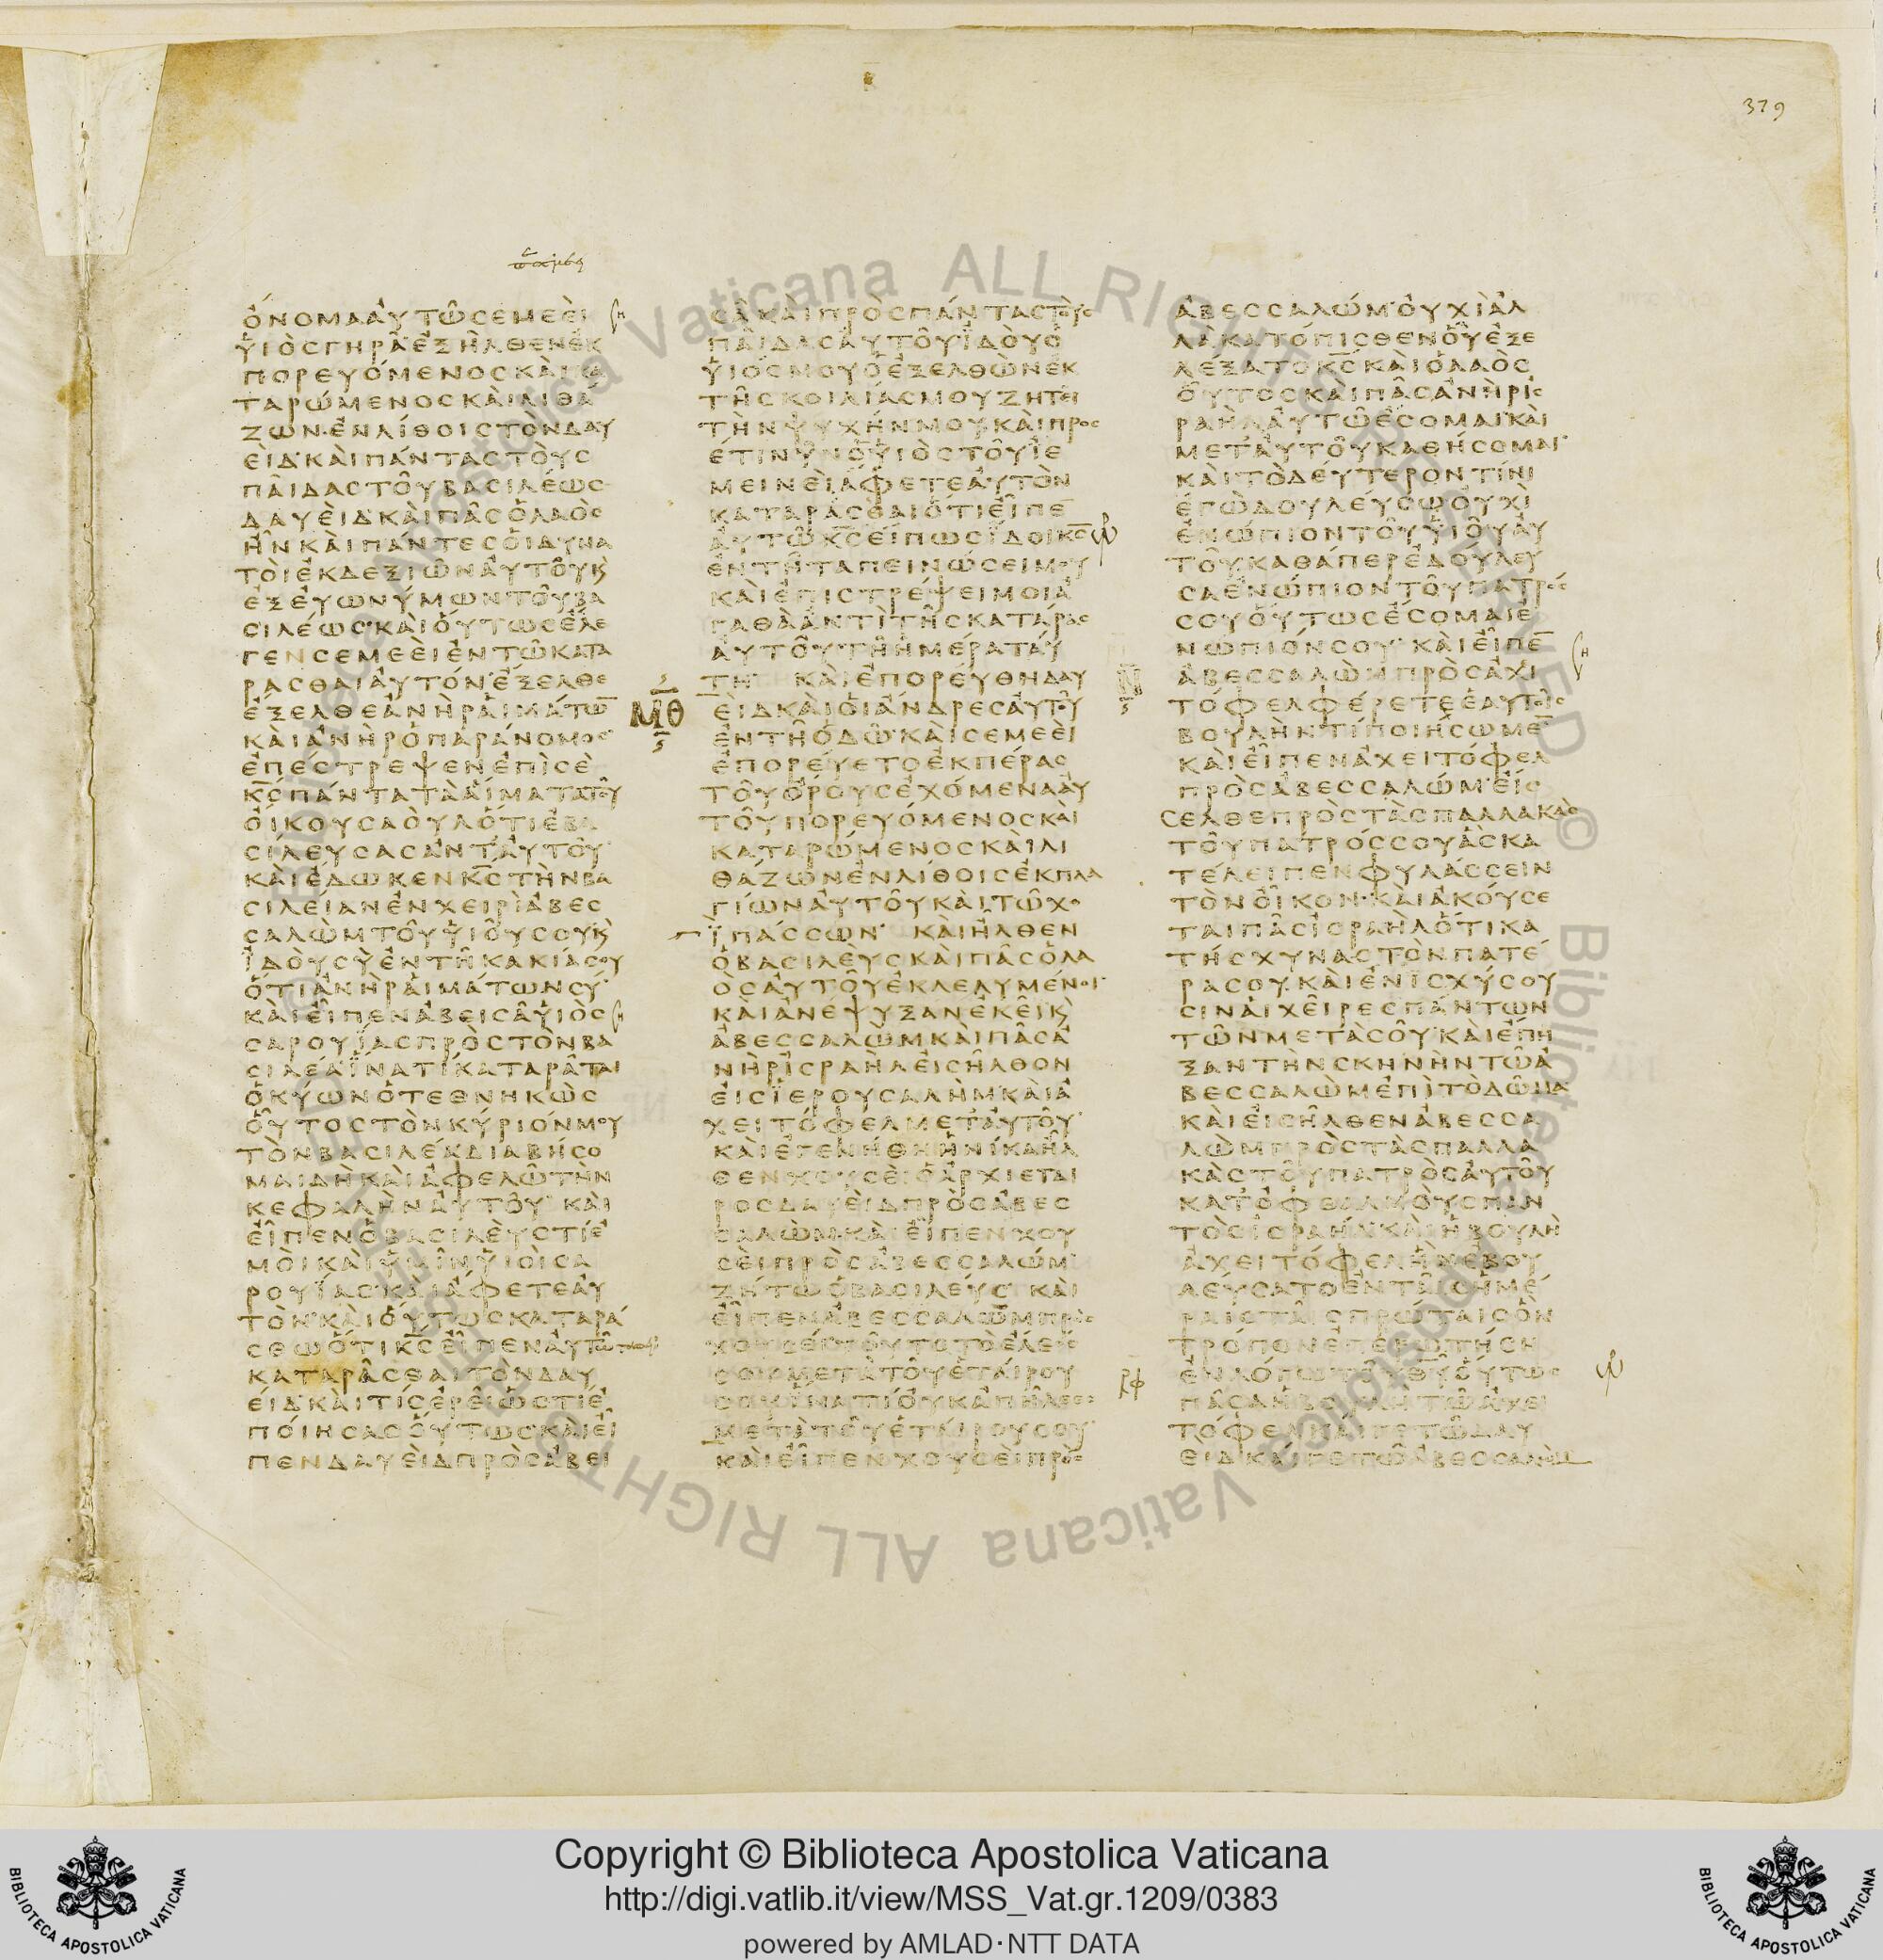 379
ὄνομα αὐτῷ Σεμεεὶ
ὑιὸς Γηρά ἐξῆλθεν ἐκ
πορευόμενος καὶ κα
ταρώμενος καὶ λιθά
ζων ἐν λίθοις τὸν Δαυ
είδ καὶ πάντας τοὺς
παῖδας τοῦ βασιλέως
Δαυεὶδ καὶ πᾶς ὁ λαὸς
ἦν καὶ πάντες οἱ δυνα
τοὶ ἐκ δεξιῶν αὐτοῦ κ
ἐξ εὐωνύμων τοῦ βα
σιλέως καὶ οὕτως ἔλε
γεν Σεμεεὶ ἐν τῷ κατα
ρᾶσθαι αὐτόν ἔξελθε
ἔξελθε ἀνὴρ αἱμάτω̅
καὶ ἀνὴρ ὁ παράνομος
ἐπέστρεψεν ἐπὶ σὲ
κ̅ς̅ πάντα τὰ αἵματα τοῦ
οἴκου Σαοὺλ ὅτι ἐβα
σίλευσας ἀντ αὐτοῦ
καὶ ἔδωκεν κ̅ς̅ τὴν βα
σιλείαν ἐν χειρὶ Ἀβες
σαλὼμ τοῦ υἱοῦ σου κ
ἰδοὺ σὺ ἐν τῇ κακίᾳ σου
ὅτι ἀνὴρ αἱμάτων σύ
καὶ εἶπεν Ἀβεισὰ υἱὸς
Σαρουΐας πρὸς τὸν βα
σιλέα ἵνα τί καταρᾶται
ὁ κύων ὁ τεθνηκὼς
οὗτος τὸν κύριόν μου
τὸν βασιλέα διαβήσο
μαι δὴ καὶ ἀφελῶ τὴν
κεφαλὴν αὐτοῦ καὶ
εἶπεν ὁ βασιλεὺς τί ἐ
μοὶ καὶ ὑμῖν υἱοὶ Σα
ρουΐας καὶ ἄφετε αὐ
τὸν καὶ οὕτως καταρά
σθω ὅτι κ̅ς̅ εἶπεν αὐτῷ
καταρᾶσθαι τὸν Δαυ
είδ καὶ τίς ἐρεῖ ὡς τί ἐ
ποίησας οὕτως καὶ εἶ
πεν Δαυεὶδ πρὸς Ἀβει
σὰ καὶ πρὸς πάντας τοὺς
παῖδας αὐτοῦ ἰδοὺ ὁ
υἱός μου ὁ ἐξελθὼν ἐκ
τῆς κοιλίας μου ζητεῖ
τὴν ψυχήν μου καὶ προς
έτι νῦν ὁ υἱὸς τοῦ Ἰε
μεινεί ἄφετε αὐτὸν
καταρᾶσθαι ὅτι εἶπε̅
αὐτῷ κ̅ς̅ εἴ πως ἴδοι κ̅ς̅
ἐν τῇ ταπεινώσει μου
καὶ ἐπιστρέψει μοι ἀ
γαθὰ ἀντὶ τῆς κατάρας
αὐτοῦ τῇ ἡμέρᾳ ταύ
τῃ καὶ ἐπορεύθη Δαυ
ΜΘ
εὶδ καὶ οἱ ἄνδρες αὐτοῦ
ἐν τῇ ὁδῷ καὶ Σεμεεὶ
ἐπορεύετο ἐκ πέρας
τοῦ ὄρους ἐχόμενα αὐ
τοῦ πορευόμενος καὶ
καταρώμενος καὶ λι
θάζων ἐν λίθοις ἐκ πλα
γίων αὐτοῦ καὶ τῷ χο
ῒ πάσσων καὶ ἦλθεν
ὁ βασιλεὺς καὶ πᾶς ὁ λα
ὸς αὐτοῦ ἐκλελυμένοι
καὶ ἀνέψυξαν ἐκεῖ κ
Ἀβεσσαλὼμ καὶ πᾶς ἀ
νὴρ Ἰσραὴλ εἰσῆλθον
εἰς Ἰερουσαλὴμ καὶ Ἀ
χειτόφελ μετ αὐτοῦ
καὶ ἐγενήθη ἡνίκα ἦλ
θεν Χουσεὶ ὁ ἀρχιεται
ρος Δαυεὶδ πρὸς Ἀβες
σαλὼμ καὶ εἶπεν Χου
σεὶ πρὸς Ἀβεσσαλώμ
ζήτω ὁ βασιλεύς καὶ
εἶπεν Ἀβεσσαλὼμ πρὸς
Χουσεί τοῦτο τὸ ἔλεός
σου μετὰ τοῦ ἑταίρου
σου ἵνα τί οὐκ ἀπῆλθες
μετὰ τοῦ ἑταίρου σου
καὶ εἶπεν Χουσεὶ πρὸς
Ἀβεσσαλώμ οὐχὶ ἀλ
λὰ κατόπισθεν οὗ ἐξε
λέξατο κ̅ς̅ καὶ ὁ λαὸς
οὗτος καὶ πᾶς ἀνὴρ Ἰς
ραὴλ αὐτῷ ἔσομαι καὶ
μετ αὐτοῦ καθήσομαι
καὶ τὸ δεύτερον τίνι
ἐγὼ δουλεύσω οὐχὶ
ἐνώπιον τοῦ υἱοῦ αὐ
τοῦ καθάπερ ἐδούλευ
σα ἐνώπιον τοῦ πατρός
σου οὕτως ἔσομαι ἐ
νώπιόν σου καὶ εἶπε̅
Ἀβεσσαλὼμ πρὸς Ἀχι
τόφελ φέρετε ἑαυτοῖς
βουλὴν τί ποιήσωμε̅
καὶ εἶπεν Ἀχειτόφελ
πρὸς Ἀβεσσαλώμ εἴς
ελθε πρὸς τὰς παλλακὰς
τοῦ πατρός σου ἃς κα
τέλειπεν φυλάσσειν
τὸν οἶκον καὶ ἀκούσε
ται πᾶς Ἰσραὴλ ὅτι κα
τῄσχυνας τὸν πατέ
ρα σου καὶ ἐνισχύσου
σιν αἱ χεῖρες πάντων
τῶν μετὰ σοῦ καὶ ἔπη
ξαν τὴν σκηνὴν τῷ Ἀ
βεσσαλὼμ ἐπὶ τὸ δῶμα
καὶ εἰσῆλθεν Ἀβεσσα
λὼμ πρὸς τὰς παλλα
κὰς τοῦ πατρὸς αὐτοῦ
κατ ὀφθαλμοὺς παν
τὸς Ἰσραήλ καὶ ἡ βουλὴ
Ἀχειτόφελ ἣν ἐβου
λεύσατο ἐν ταῖς ἡμέ
ραις ταῖς πρώταις ὃν
τρόπον ἐπερωτήσῃ
ἐν λόγῳ τοῦ θ̅υ̅ οὕτως
πᾶσα ἡ βουλὴ τῷ Ἀχει
τόφελ καί γε τῷ Δαυ
εὶδ καί γε τῷ Ἀβεσσαλώμ
Copyright © Biblioteca Apostolica Vaticana
http://digi.vatlib.it/view/MSS_Vat.gr.1209/0383
powered by AMLAD·NTT DATA
BIBLIOTECA APOSTOLICA VATICANA
BIBLIOTECA APOSTOLICA VATICANA